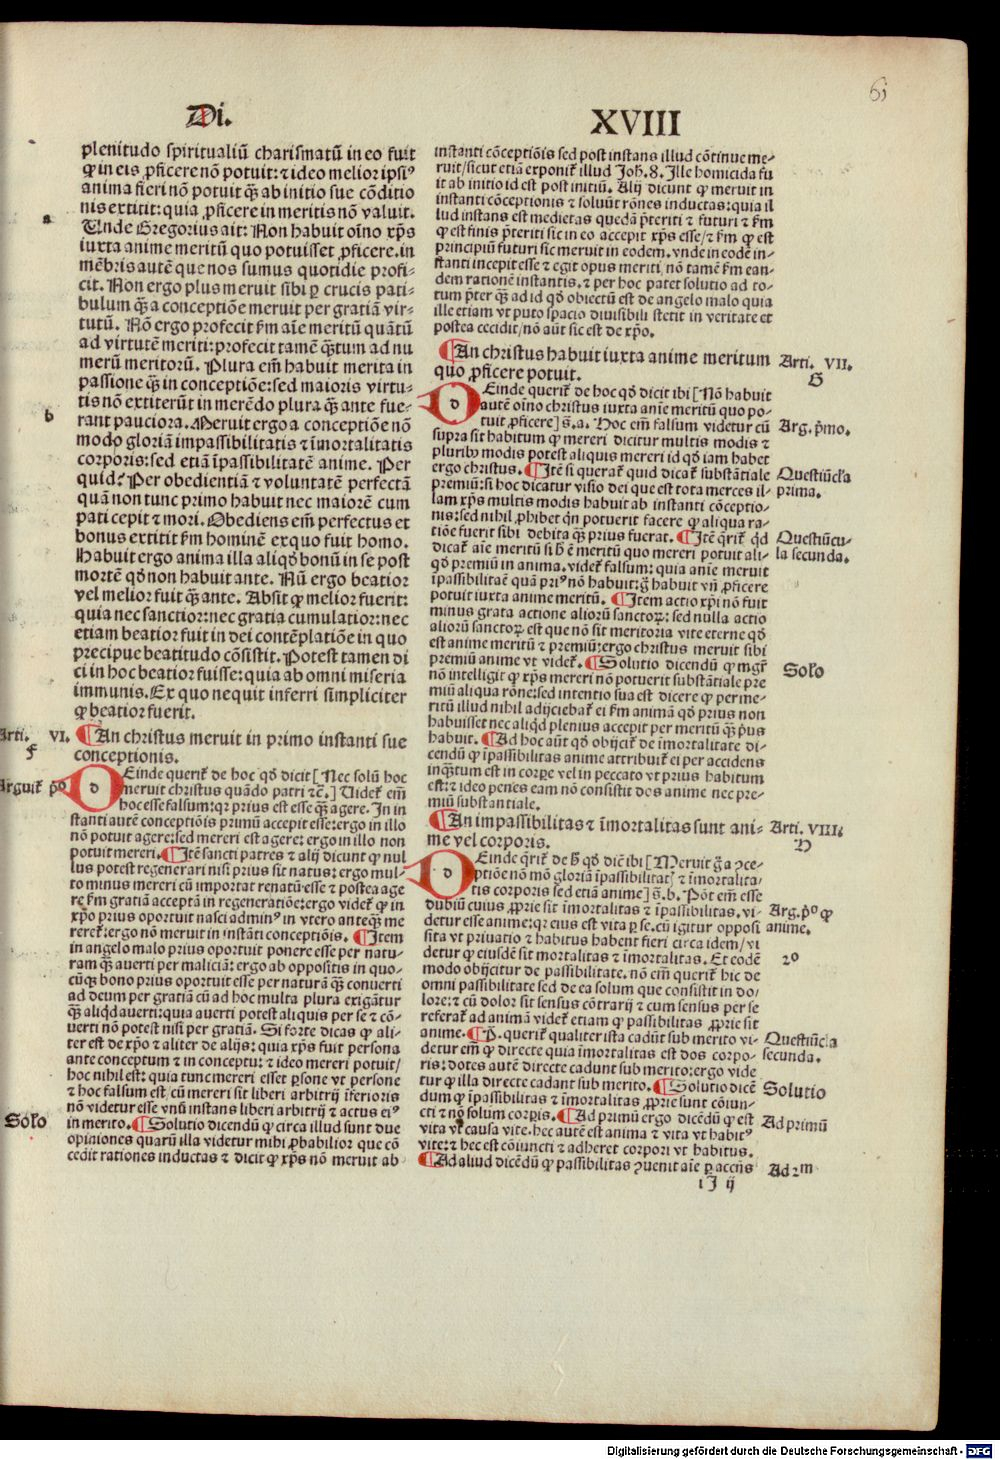 6j
Di.
XVIII
plenitudo spiritualiū charismatū in eo fuit
ꝙ in eis ꝓficere nō potuit: ⁊ ideo melior ipsiꝰ
anima fieri nō potuit q̄ꝫ ab initio sue cōditio
nis extitit: quia ꝓficere in meritis nō valuit.
a
Unde Gregorius ait: Non habuit oīno xp̄s
iuxta anime meritū quo potuisset ꝓficere. in
mēbris autē que nos sumus quotidie profi-
cit. Non ergo plus meruit sibi ꝑ crucis pati-
bulum q̄ꝫ a conceptiōe meruit per gratiā vir-
tutū. Nō ergo profecit ẜm aīe meritū quātū
ad virtutē meriti: profecit tamē q̄ꝫtum ad nu
merū meritorū. Plura em̄ habuit merita in
passione q̄ꝫ in conceptiōe: sed maioris virtu-
tis nō extiterūt in merēdo plura q̄ꝫ ante fue-
b
rant pauciora. Meruit ergo a conceptiōe nō
modo gloriā impassibilitatis ⁊ īmortalitatis
corporis: sed etiā īpassibilitatē anime. Per
quid? Per obedientiā ⁊ voluntatē perfectā
quā non tunc primo habuit nec maiorē cum
pati cepit ⁊ mori. Obediens em̄ perfectus et
bonus extitit ẜm hominē ex quo fuit homo.
Habuit ergo anima illa aliqd̄ bonū in se post
mortē qd̄ non habuit ante. Nū ergo beatior
vel melior fuit q̄ꝫ ante. Absit ꝙ melior fuerit:
quia nec sanctior: nec gratia cumulatior: nec
etiam beatior fuit in dei contēplatiōe in quo
precipue beatitudo cōsistit. Potest tamen di
ci in hoc beatior fuisse: quia ab omni miseria
immunis. Ex quo nequit inferri simpliciter
ꝙ beatior fuerit.
Arti. VI.
f
¶An christus meruit in primo instanti sue
conceptionis.
Arguit̄ pº
Deinde querit̄ de hoc qd̄ dicit [Nec solū hoc
meruit christus quādo patri ⁊c̄.] Uidet̄ em̄
hoc esse falsum: qꝛ prius est esse q̄ꝫ agere. In in
stanti autē conceptiōis primū accepit esse: ergo in illo
nō potuit agere: sed mereri est agere: ergo in illo non
potuit mereri. ¶Itē sancti patres ⁊ alij dicunt ꝙ nul
lus potest regenerari nisi prius sit natus: ergo mul-
to minus mereri cū importat renatū esse ⁊ postea age
re ẜm gratiā acceptā in regeneratiōe: ergo videt̄ ꝙ in
xp̄o prius oportuit nasci adminꝰ in vtero anteq̄ꝫ me
reret̄: ergo nō meruit in instāti conceptiōis. ¶Item
in angelo malo prius oportuit ponere esse per natu-
ram q̄ꝫ auerti per maliciā: ergo ab oppositis in quo-
cūqꝫ bono prius oportuit esse per naturā q̄ꝫ conuerti
ad deum per gratiā cū ad hoc multa plura exigātur
q̄ꝫ aliqd̄ auerti: quia auerti potest aliquis per se ⁊ cō-
uerti nō potest nisi per gratiā. Si forte dicas ꝙ ali-
ter est de xp̄o ⁊ aliter de alijs: quia xp̄s fuit persona
ante conceptum ⁊ in conceptu: ⁊ ideo mereri potuit/
hoc nihil est: quia tunc mereri esset ꝑsone vt persone
⁊ hoc falsum est/ cū mereri sit liberi arbitrij īferioris
nō videtur esse vnū instans liberi arbitrij ⁊ actus eiꝰ
Solo
in merito. ¶Solutio dicendū ꝙ circa illud sunt due
opiniones quarū illa videtur mihi ꝓbabilior que cō
cedit rationes inductas ⁊ dicit ꝙ xp̄s nō meruit ab
instanti cōceptiōis sed post instans illud cōtinue me-
ruit/sicut etiā exponit̄ illud Joh̄. 8. Ille homicida fu
it ab initio id est post initiū. Alij dicunt ꝙ meruit in
instanti cōceptionis ⁊ soluūt rōnes inductas: quia il
lud instans est medietas quedā p̄teriti ⁊ futuri ⁊ ẜm
ꝙ est finis p̄teriti sic in eo accepit xp̄s esse/⁊ ẜm ꝙ est
principiū futuri sic meruit in eodem. vnde in eodē in-
stanti incepit esse ⁊ egit opus meriti nō tamē ẜm ean-
dem rationē instantis. ⁊ per hoc patet solutio ad to-
tum p̄ter q̄ꝫ ad id qd̄ obiectū est de angelo malo quia
ille etiam vt puto spacio diuisibili stetit in veritate et
postea cecidit/nō aūt sic est de xp̄o.
¶An christus habuit iuxta anime meritum
quo ꝓficere potuit.
Arti. VII.
G
Deinde querit̄ de hoc qd̄ dicit ibi [Nō habuit
autē oīno christus iuxta anīe meritū quo po-
tuit ꝓficere] s. a. Hoc em̄ falsum videtur cū
Arg. p̄mo.
supra sit habitum ꝙ mereri dicitur multis modis ⁊
pluribꝰ modis potest aliquis mereri id qd̄ iam habet
ergo christus. ¶Itē si querat̄ quid dicat̄ substātiale
Questiūcl̄a
prima.
premiū: si hoc dicatur visio dei que est tota merces il-
lam xp̄s multis modis habuit ab instanti cōceptio-
nis: sed nihil ꝓhibet qn̄ potuerit facere ꝙ aliqua ra-
tiōe fuerit sibi debita q̄ꝫ prius fuerat. ¶Itē q̄rit̄ qd̄
Questiūcu-
la secunda.
dicat̄ aīe meritū si h̄ ē meritū quo mereri potuit ali-
qd̄ premiū in anima. videt̄ falsum: quia anīe meruit
īpassibilitaē quā priꝰ nō habuit: g̊ habuit vn̄ ꝓficere
potuit iuxta anime meritū. ¶Item actio xp̄i nō fuit
minus grata actione aliorū sanctoꝝ: sed nulla actio
aliorū sanctoꝝ est que nō sit meritoria vite eterne qd̄
est anime meritū ⁊ premiū: ergo christus meruit sibi
premiū anime vt videt̄. ¶Solutio dicendū ꝙ mgr̄
Solo
nō intelligit ꝙ xp̄s mereri nō potuerit substātiale pre
miū aliqua rōne: sed intentio sua est dicere ꝙ per me-
ritū illud nihil adijciebat̄ ei ẜm animā qd̄ prius non
habuisset nec aliqd̄ plenius accepit per meritū q̄ꝫ pͥus
habuit. ¶Ad hoc aūt qd̄ obijcit̄ de īmortalitate di-
cendū ꝙ īpassibilitas anime attribuit̄ ei per accidens
inq̄ꝫtum est in corpe vel in peccato vt prius habitum
est: ⁊ ideo penes eam nō consistit dos anime nec pre-
miū substantiale.
¶An impassibilitas ⁊ īmortalitas sunt ani-
me vel corporis.
Arti. VIII.
H
Deinde q̄rit̄ de h̄ qd̄ diē ibi [Meruit g̊ a ꝯce-
ptiōe nō mō gloriā īpassibilitat̄ ⁊ īmortalita-
tis corporis sed etiā anime] s. b. Pōt em̄ esse
dubiū cuius ꝓprie sit īmortalitas ⁊ īpassibilitas. vi-
Arg. pº ꝙ
anime.
detur esse anime: qꝛ eius est vita ꝑ se. cū igitur opposi
sita vt priuatio ⁊ habitus habent fieri circa idem/vi
detur ꝙ eiusdē sit mortalitas ⁊ īmortalitas. Et eodē
2º
modo obijcitur de passibilitate. nō em̄ querit̄ hic de
omni passibilitate sed de ea solum que consistit in do/
lore: ⁊ cū dolor sit sensus cōtrarij ⁊ cum sensus per se
referat̄ ad animā videt̄ etiam ꝙ passibilitas ꝓprie sit
anime. ¶P̄. querit̄ qualiter ista cadūt sub merito vi-
Questiūcl̄a
secunda.
detur em̄ ꝙ directe quia īmortalitas est dos corpo-
ris: dotes autē directe cadunt sub merito: ergo vide
tur ꝙ illa directe cadant sub merito. ¶Solutio dicē
Solutio
dum ꝙ īpassibilitas ⁊ īmortalitas ꝓprie sunt cōiun-
cti ⁊ nō solum corꝑis. ¶Ad primū ergo dicēdū ꝙ est
Ad primū
vita vt causa vite. hec autē est anima ⁊ vita vt habitꝰ
vite: ⁊ hec est cōiuncti ⁊ adheret corpori vt habitus.
¶Ad aliud dicēdū ꝙ passibilitas ꝯuenit aīe ꝑ accn̄s
Ad 2m
1J ij
Digitalisierung gefördert durch die Deutsche Forschungsgemeinschaft - DFG